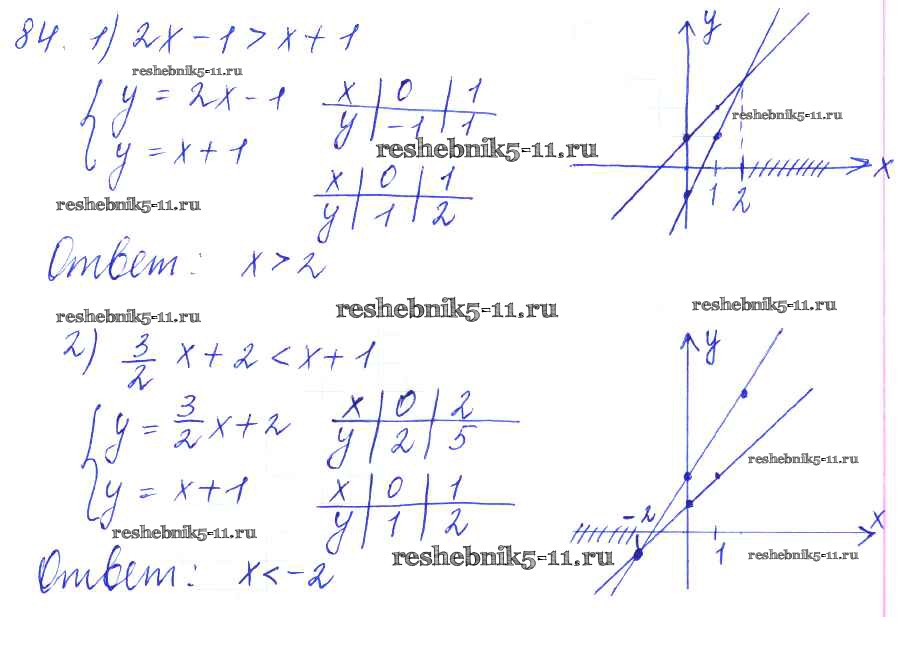 84. 1) 2x - 1 > x + 1
reshebnik5-11.ru
{ y = 2x - 1
y = x + 1
x | 0 | 1
y | -1 | 1
reshebnik5-11.ru
x | 0 | 1
y | 1 | 2
reshebnik5-11.ru
y
reshebnik5-11.ru
x
1 2
Ответ: x > 2
reshebnik5-11.ru
reshebnik5-11.ru
reshebnik5-11.ru
2) 3/2 x + 2 < x + 1
{ y = 3/2 x + 2
y = x + 1
x | 0 | 2
y | 2 | 5
x | 0 | 1
y | 1 | 2
y
reshebnik5-11.ru
-2
x
1
reshebnik5-11.ru
reshebnik5-11.ru
reshebnik5-11.ru
Ответ: x < -2